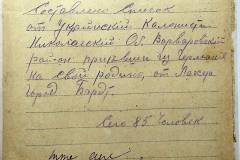 Составлено Список
от Украинский Колонист
Николаевский Об Варваровский
район прибывши из Германия
на свой родина, от Лагиа
город Бардт
Всего 85 Человек